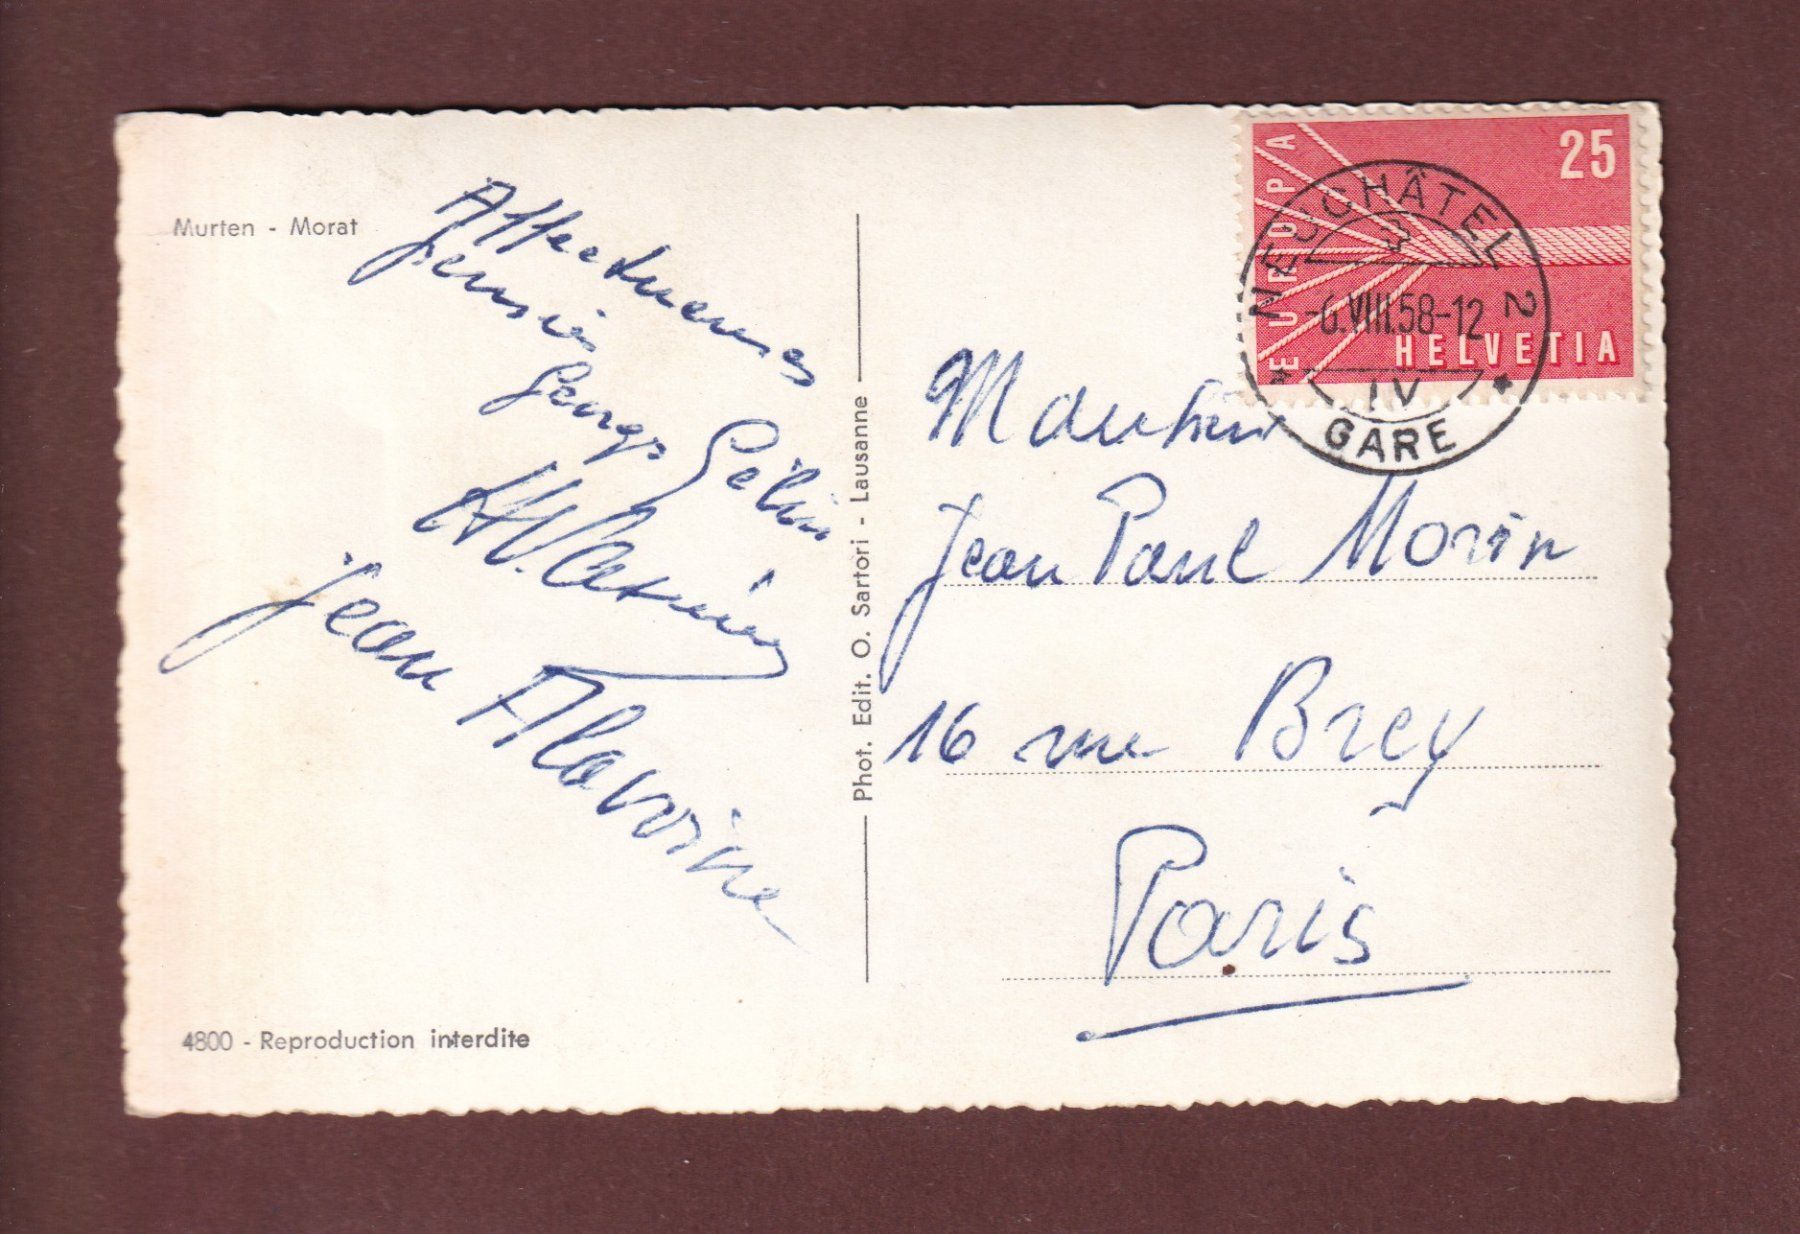 Murten - Morat
Affectueuses
pensées
George Gélin
Jean Alavoine
4800 - Reproduction interdite
Phot. Edit. O. Sartori - Lausanne
EUROPA
25
HELVETIA
NEUCHÂTEL 2
-6.VIII.58-12
IV
GARE
Jean Paul Morin
16 rue Brey
Paris